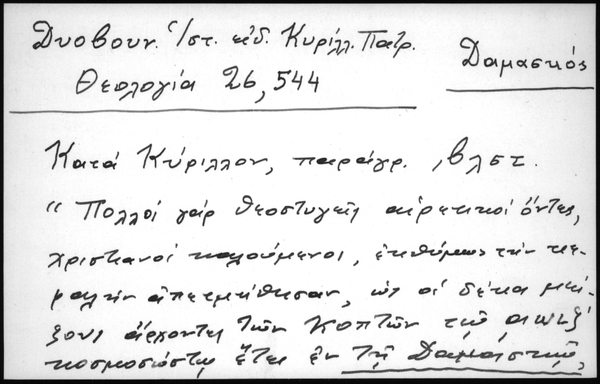 Δυοβουν. Ἱστ. ἐκδ. Κυρίλλ. Πατρ.
Θεολογία 26, 544
Δαμασκός
Κατά Κύριλλον, παράγρ. ,βλστ.
"Πολλοί γάρ θεοστυγεῖς αἱρετικοί ὄντες,
χριστιανοί καλούμενοι, ἐκθύμως τήν κε-
φαλήν ἀπετμήθησαν, ὡς οἱ δέκα μεί-
ζους ἄρχοντες τῶν Κοπτῶν τῷ
κοσμοσώστῳ ἔτει ἐν τῇ Δαμασκῷ,